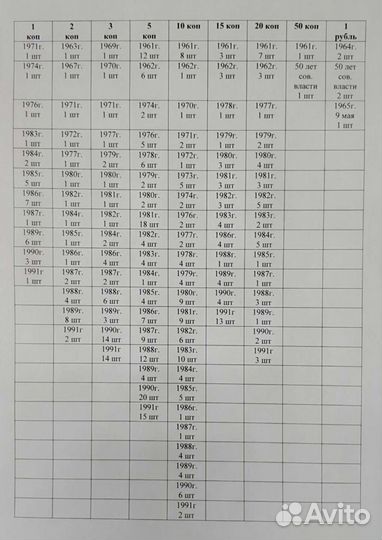 1 2 3 5 10 коп 15 коп 20 коп 50 коп 1
коп коп коп коп рубль
1971г. 1963г. 1969г. 1961г. 1961г. 1961г. 1961г. 1961г. 1964г.
1 шт 1 шт 1 шт 12 шт 8 шт 3 шт 7 шт 1 шт 2 шт
1974г. 1967г. 1970г. 1962г. 1962г. 1962г. 1962г. 50 лет 50 лет
1 шт 1 шт 1 шт 6 шт 1 шт 3 шт 3 шт сов. сов.
власти власти
1 шт 1 шт
1976г. 1971г. 1971г. 1974г. 1970г. 1978г. 1977г. 1965г.
1 шт 1 шт 1 шт 2 шт 1 шт 1 шт 1 шт 9 мая
1 шт
1983г. 1972г. 1977г. 1976г. 1971г. 1979г. 1979г.
1 шт 1 шт 1 шт 5 шт 2 шт 1 шт 2 шт
1984г. 1977г. 1979г. 1978г. 1972г. 1980г. 1980г.
2 шт 1 шт 2 шт 6 шт 1 шт 3 шт 4 шт
1985г. 1980г. 1980г. 1979г. 1973г. 1981г. 1981г.
5 шт 1 шт 1 шт 2 шт 5 шт 3 шт 3 шт
1986г. 1982г. 1981г. 1980г. 1974г. 1982г. 1982г.
7 шт 1 шт 1 шт 2 шт 2 шт 3 шт 5 шт
1987г. 1984г. 1982г. 1981г. 1976г 1983г. 1983г.
1 шт 1 шт 1 шт 18 шт 2 шт 4 шт 2 шт
1989г. 1985г. 1984г. 1982г. 1977г. 1986г. 1984г.
6 шт 1 шт 2 шт 4 шт 2 шт 4 шт 5 шт
1990г. 1986г. 1986г. 1983г. 1978г. 1988г. 1985г.
3 шт 1 шт 4 шт 4 шт 4 шт 1 шт 1 шт
1991г 1987г. 1987г. 1984г. 1979г. 1989г. 1987г.
1 шт 2 шт 2 шт 4 шт 4 шт 4 шт 1 шт
1988г. 1988г. 1985г. 1980г. 1990г. 1988г.
4 шт 6 шт 4 шт 9 шт 4 шт 3 шт
1989г. 1989г. 1986г. 1981г. 1991г 1989г.
8 шт 3 шт 7 шт 9 шт 13 шт 1 шт
1991г 1990г. 1987г. 1982г. 1990г.
2 шт 14 шт 9 шт 6 шт 2 шт
1991г 1988г. 1983г. 1991г
14 шт 12 шт 10 шт 3 шт
1989г. 1984г.
4 шт 4 шт
1990г. 1985г.
20 шт 5 шт
1991г 1986г.
15 шт 1 шт
1987г.
1 шт
1988г.
4 шт
1989г.
4 шт
1990г.
6 шт
1991г
2 шт
Avito